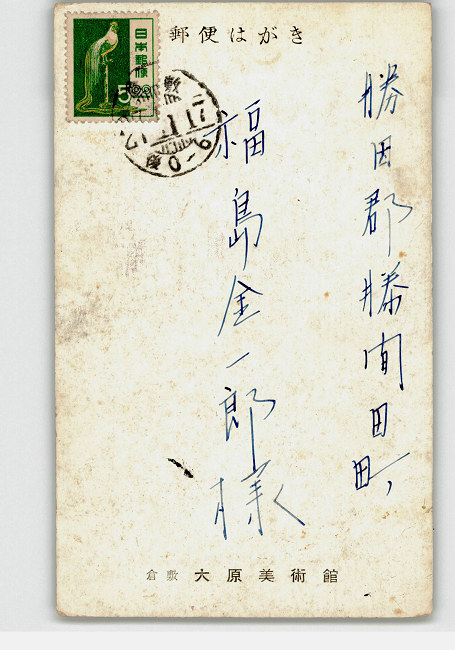 郵便はがき
日本郵便
5
勝田郡勝間田町
福島金一郎様
倉敷 大原美術館